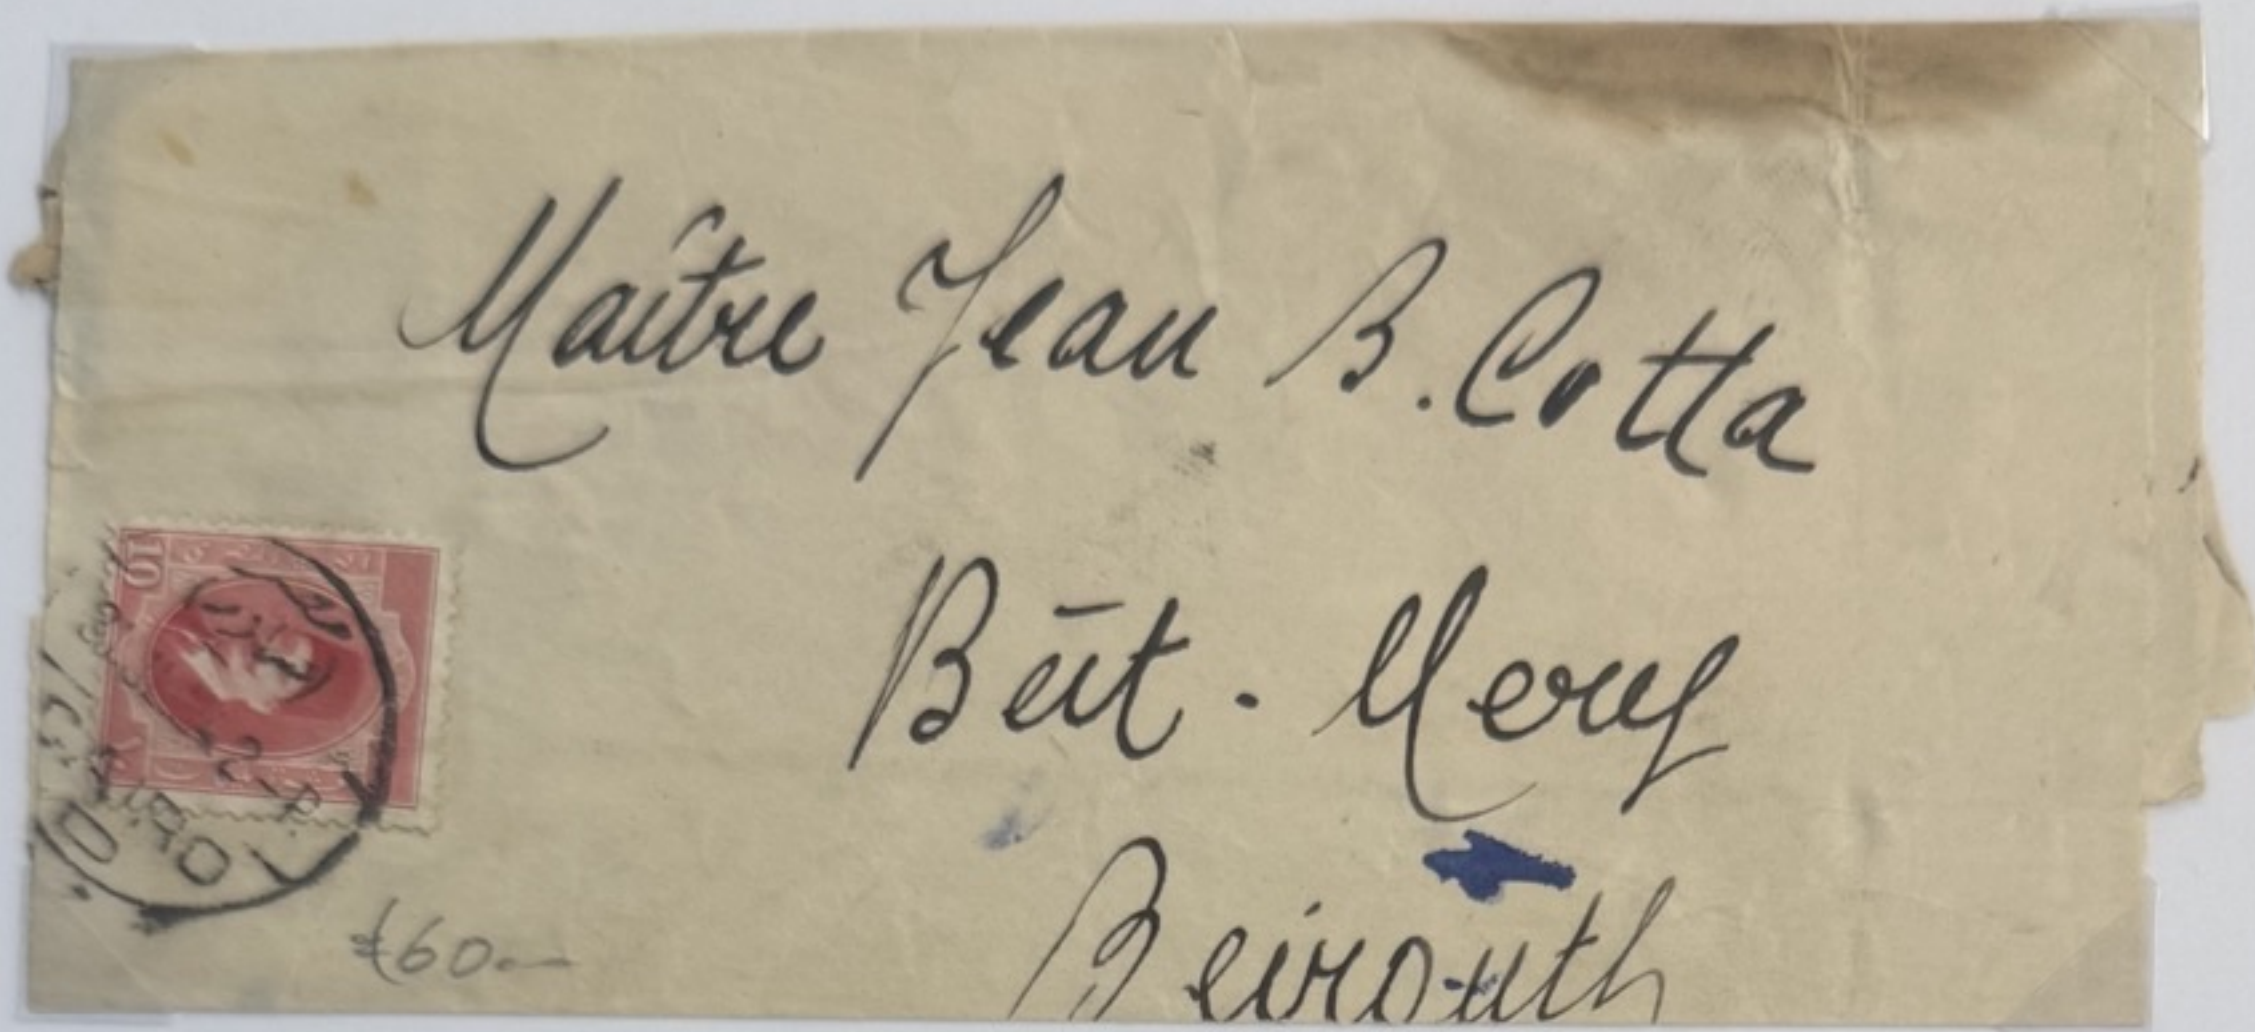 Maître Jean B. Cotta
Beit-Mery
Beirouth
10
CAIRO
£60.—